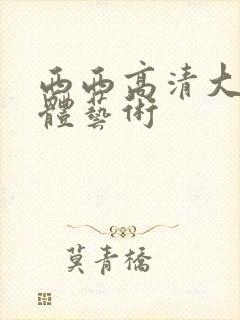 西西高清大
體藝術
莫青橋